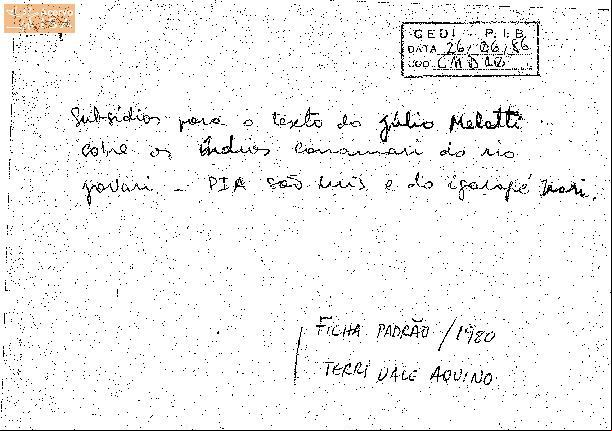 CEDI - P.I.B.
DATA 26/06/86
COD. CMD20
Subsídios para o texto do Júlio Melatti
sobre os índios Canamari do rio
Javari - PIA São Luís e do igarapé
FICHA PADRÃO / 1980
TERRI VALE AQUINO